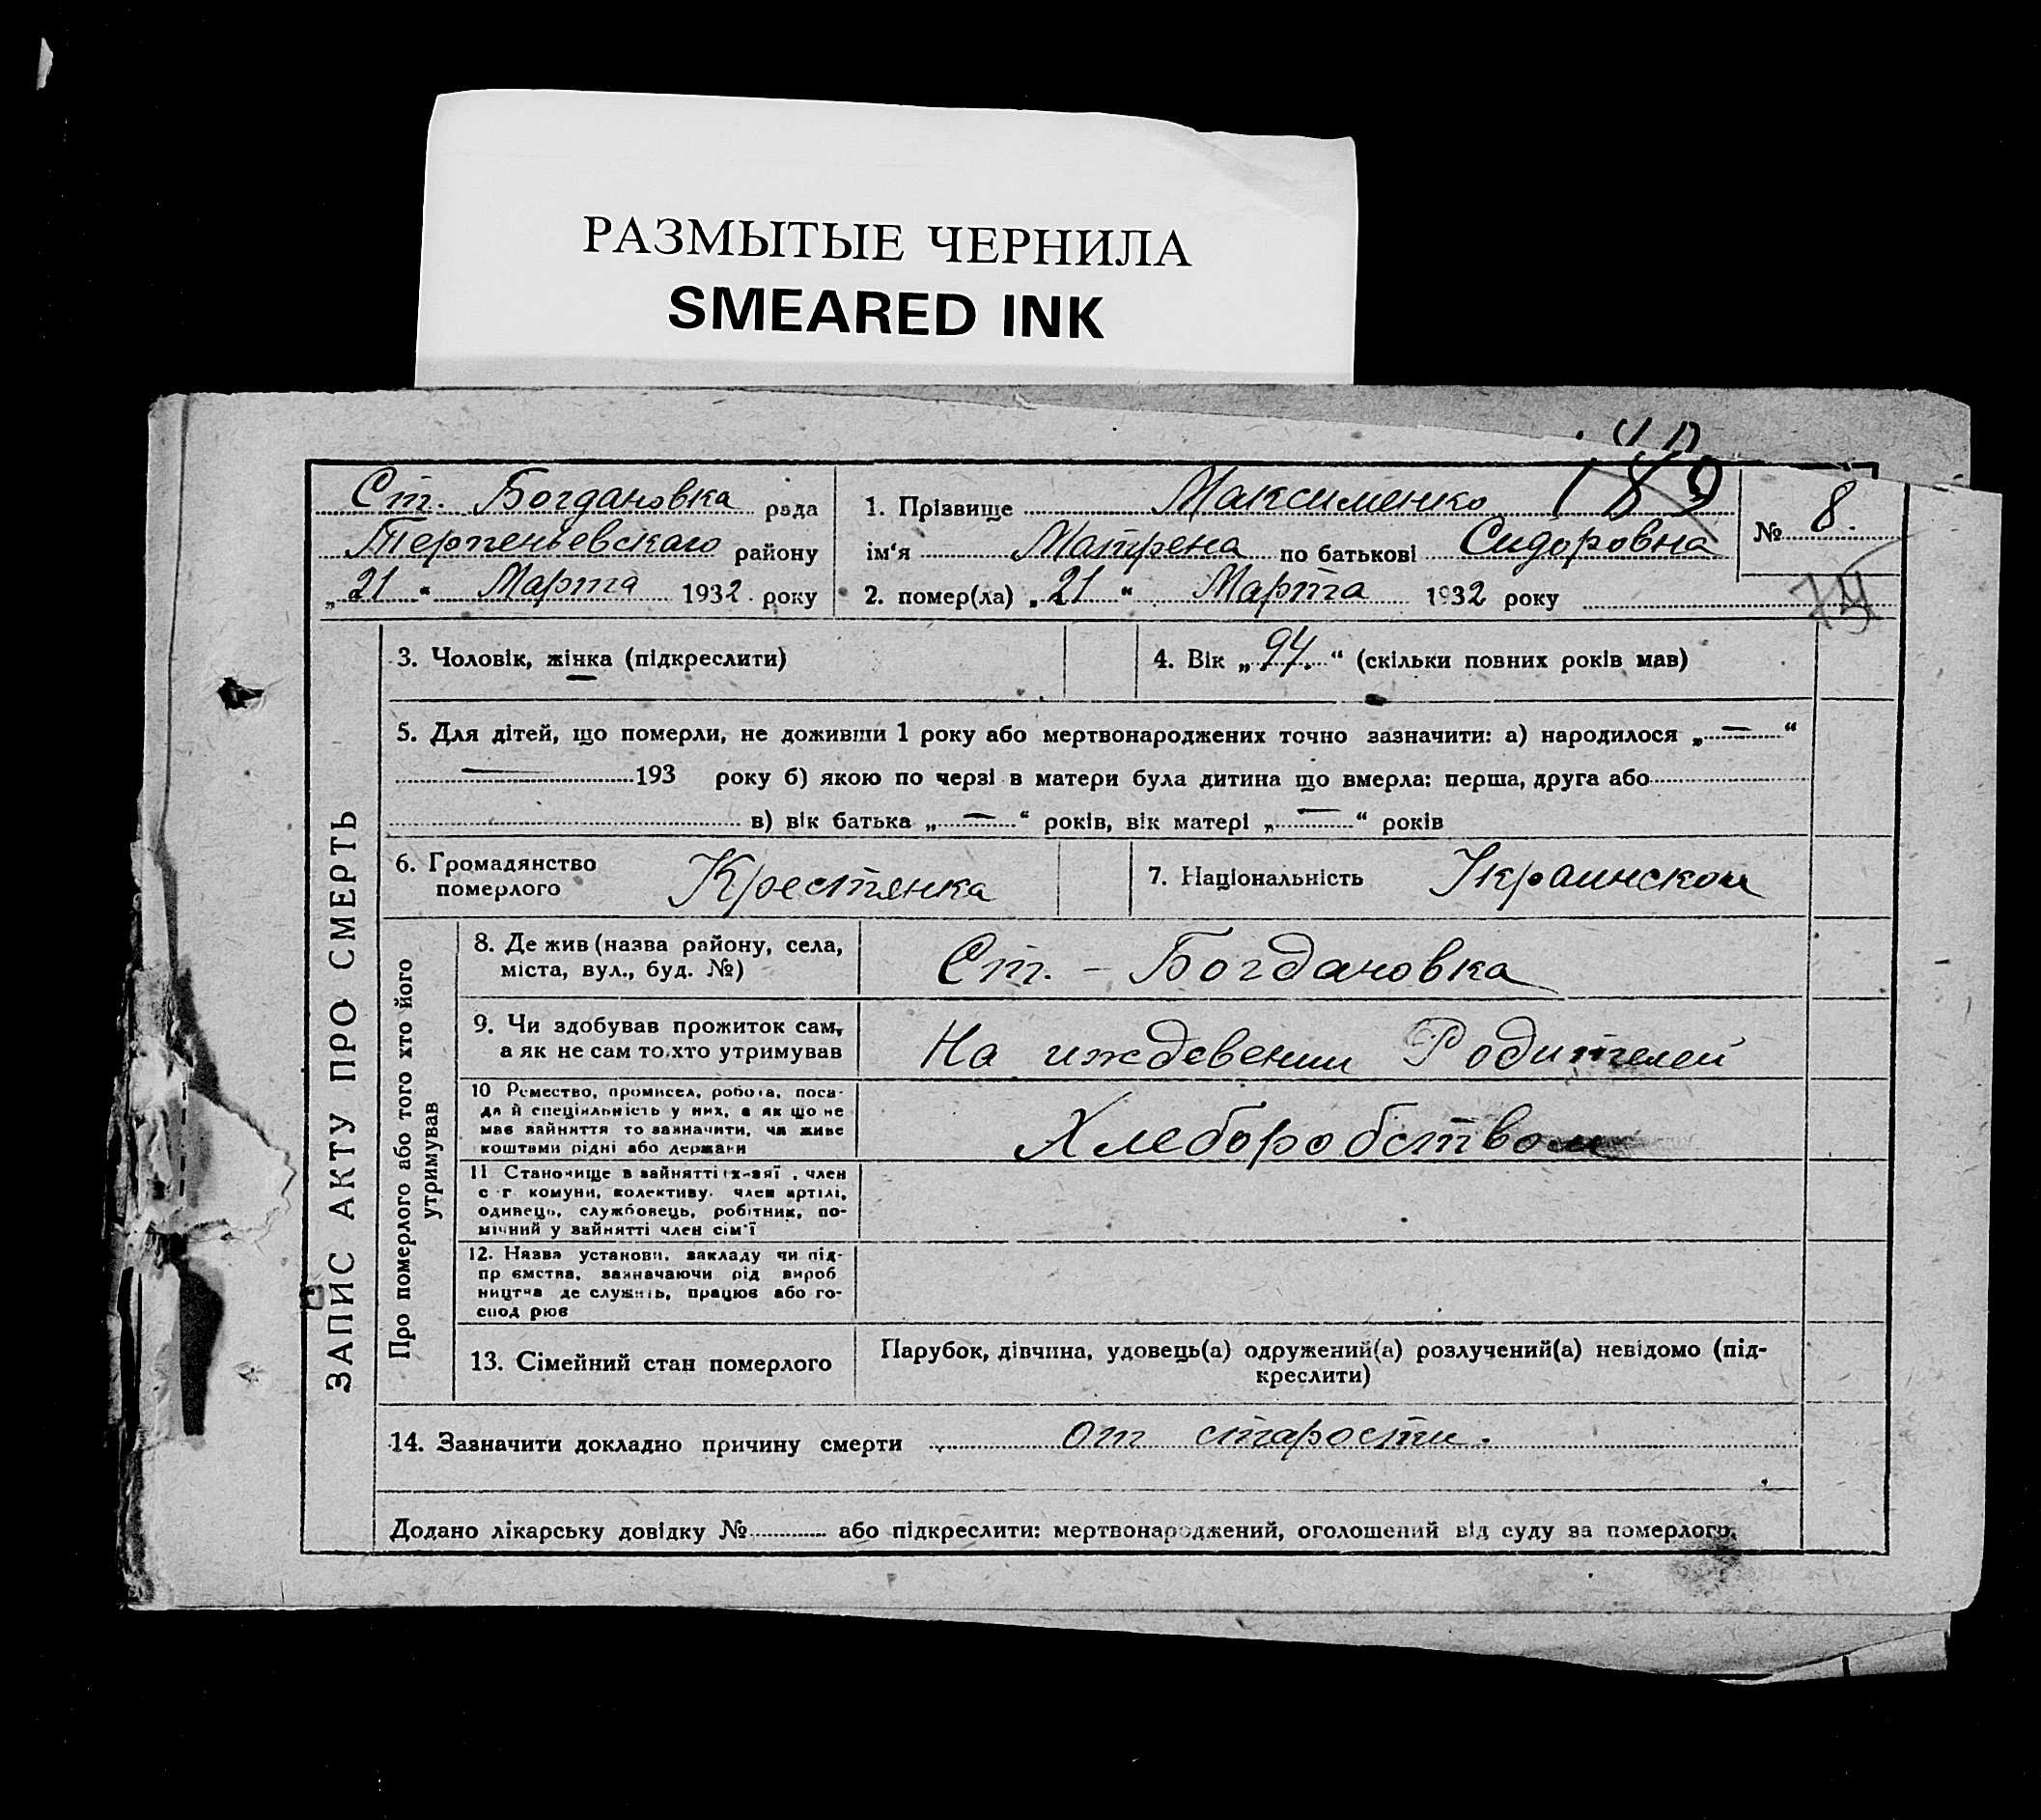 РАЗМЫТЫЕ ЧЕРНИЛА
SMEARED INK
189
Ст. Богдановка рада
Терпеньевскаго району
„21“ Марта 1932 року
1. Прізвище Максименко
ім‘я Матрена по батькові Сидоровна
2. помер(ла) „21“ Марта 1932 року
№ 8.
ЗАПИС АКТУ ПРО СМЕРТЬ
3. Чоловік, жінка (підкреслити)
4. Вік „94.“ (скільки повних років мав)
5. Для дітей, що померли, не доживши 1 року або мертвонароджених точно зазначити: а) народилося „—“
— 193 року б) якою по черзі в матери була дитина що вмерла: перша, друга або
в) вік батька „—“ років, вік матері „—“ років
6. Громадянство
померлого Крестянка
7. Національність Украинской
Про померлого або того хто його
утримував
8. Де жив (назва району, села,
міста, вул., буд. №)
Ст. - Богдановка
9. Чи здобував прожиток сам,
а як не сам то хто утримував
На иждевении Родителей
10 Ремество, промисел, робота, поса-
да й спеціяльність у них, а як що не
має зайняття то зазначити, чи живе
коштами рідні або держави
Хлеборобством
11 Становище в зайнятті член
с г комуни, колективу, член артілі,
одинець, службовець, робітник, по-
мічний у зайнятті член сім'ї
12. Назва установи, закладу чи під-
пр ємства, зазначаючи рід вироб
ництва де служить, працює або го-
спод рює
13. Сімейний стан померлого
Парубок, дівчина, удовець(а) одружений(а) розлучений(а) невідомо (під-
креслити)
14. Зазначити докладно причину смерти от старости.
Додано лікарську довідку № або підкреслити: мертвонароджений, оголошений від суду за померлого.